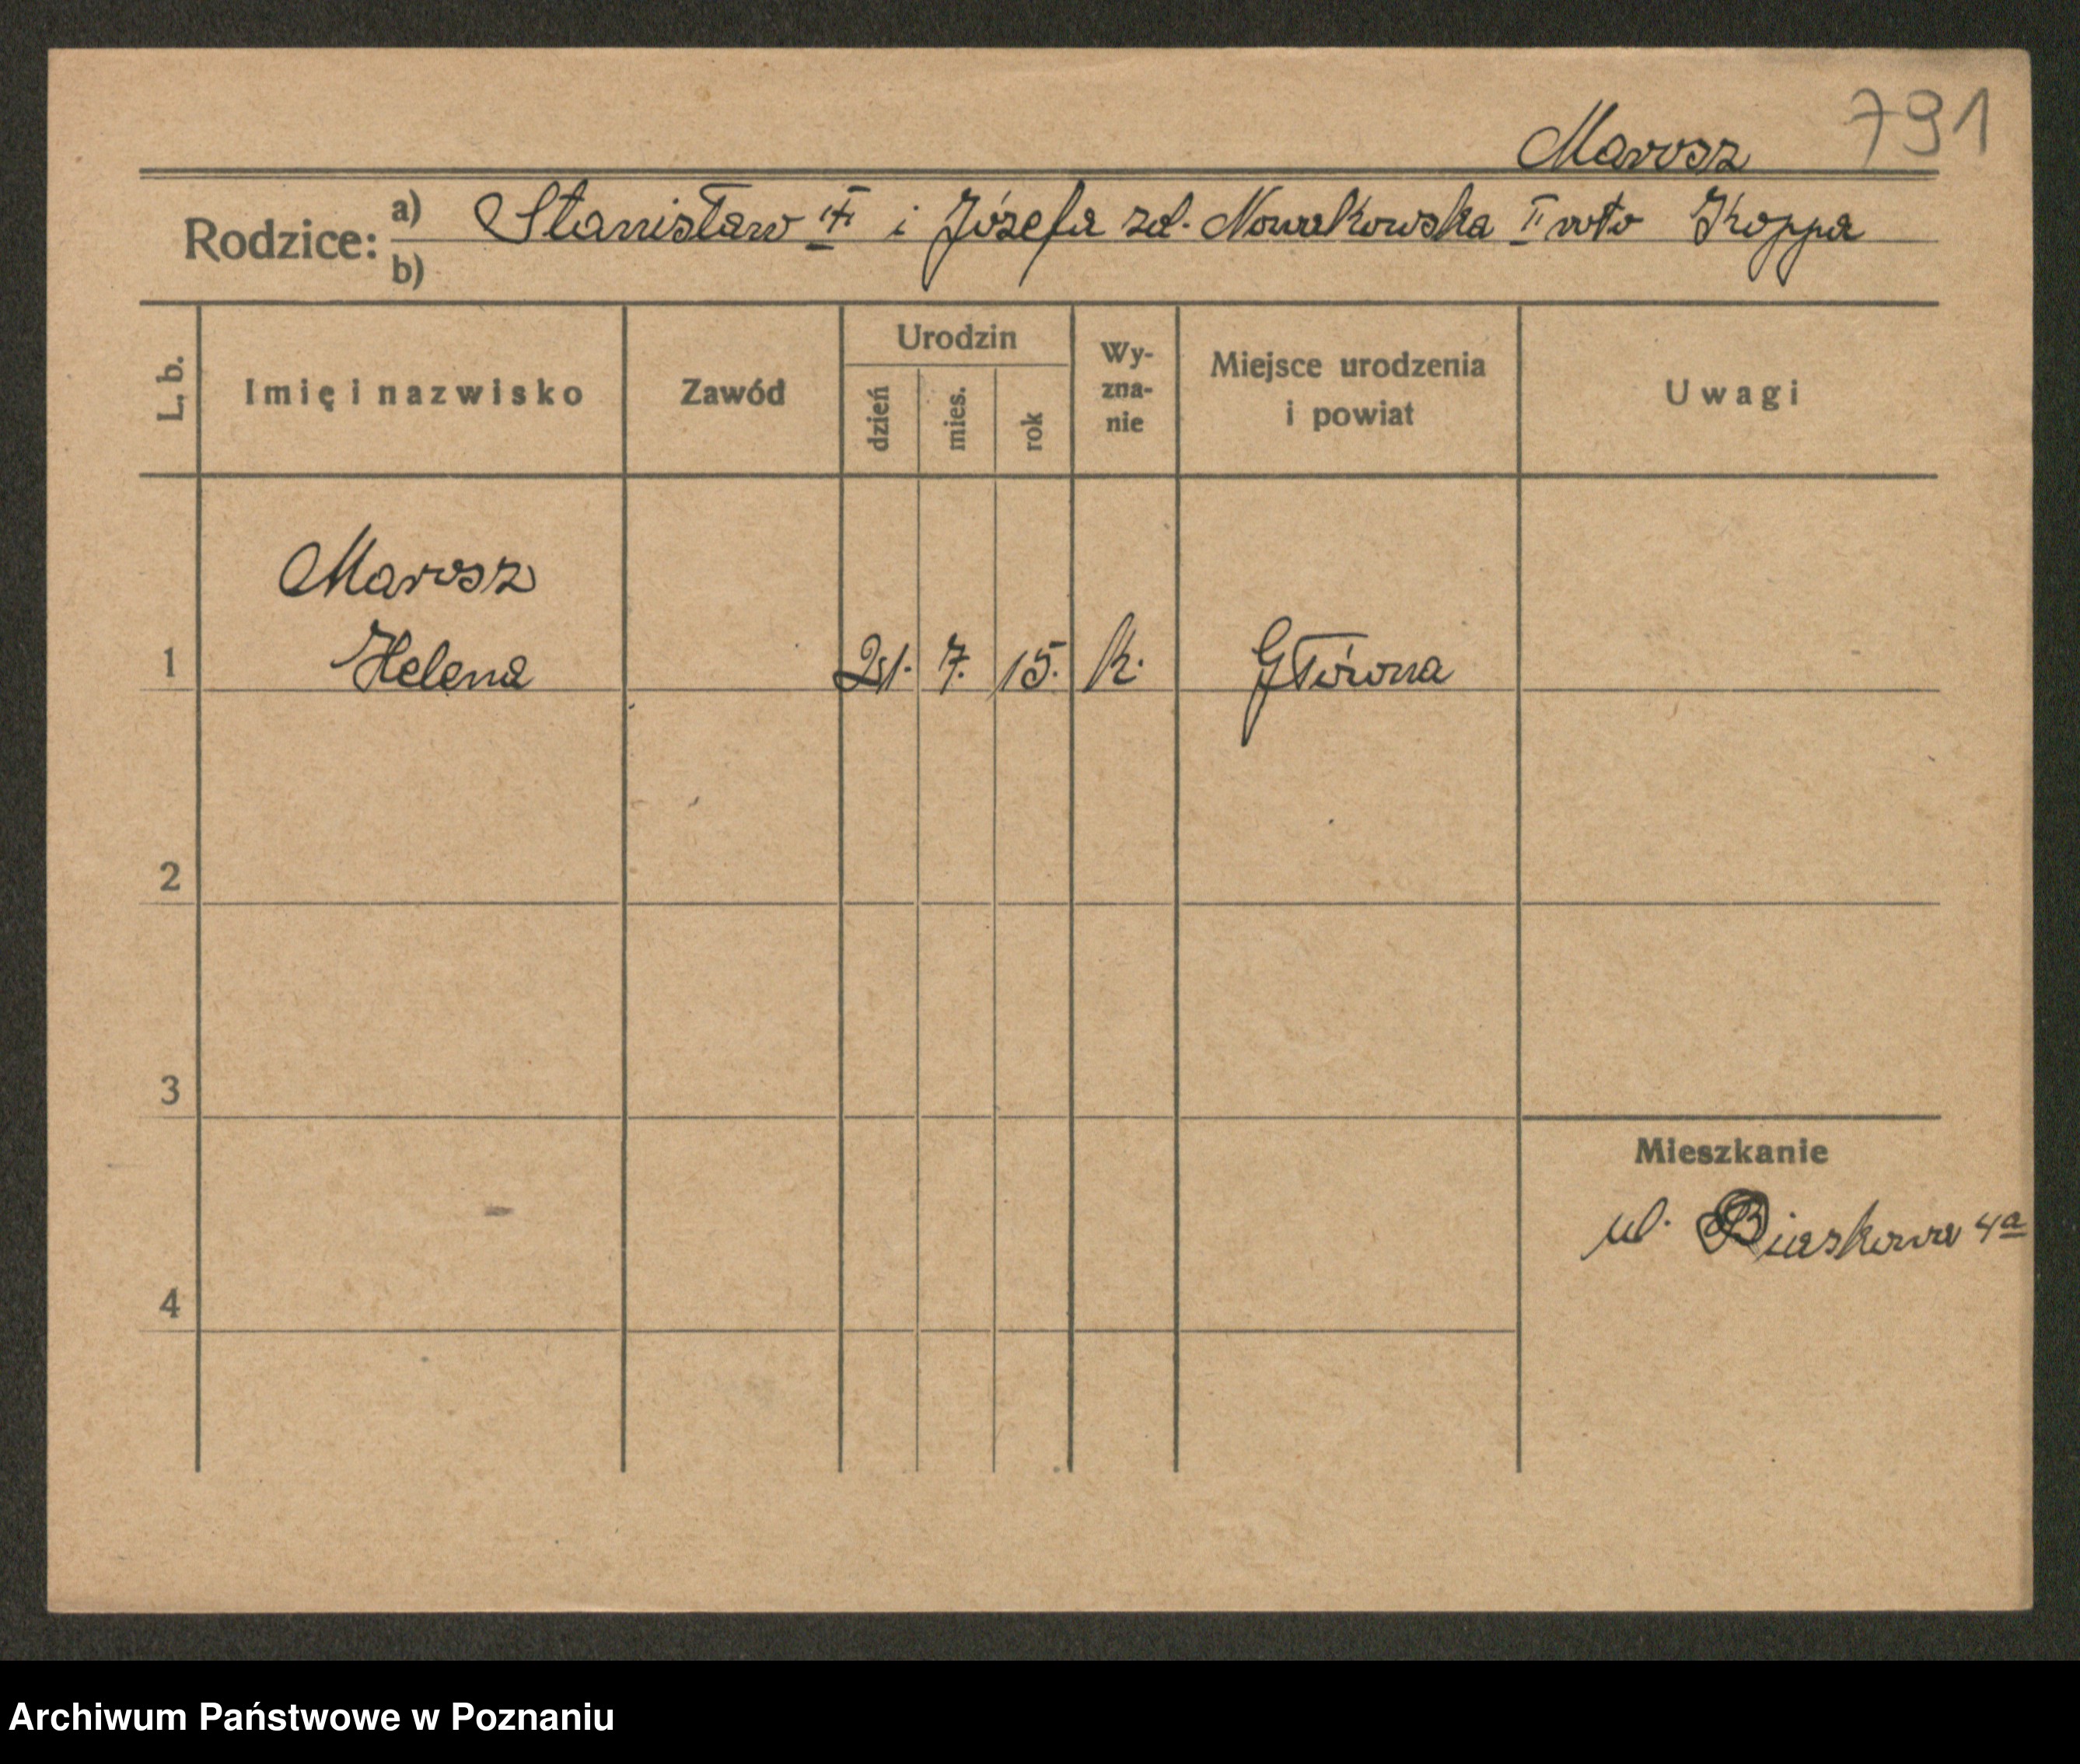 791
Marosz
Rodzice: a) Stanisław i Józefa zd. Nowakowska II voto Koppa
b)
L. b.
Imię i nazwisko
Zawód
Urodzin
dzień
mies.
rok
Wy-
zna-
nie
Miejsce urodzenia
i powiat
Uwagi
Marosz
1 Helena 21. 7. 15. k. Główna
2
3
Mieszkanie
ul. 4a
4
Archiwum Państwowe w Poznaniu